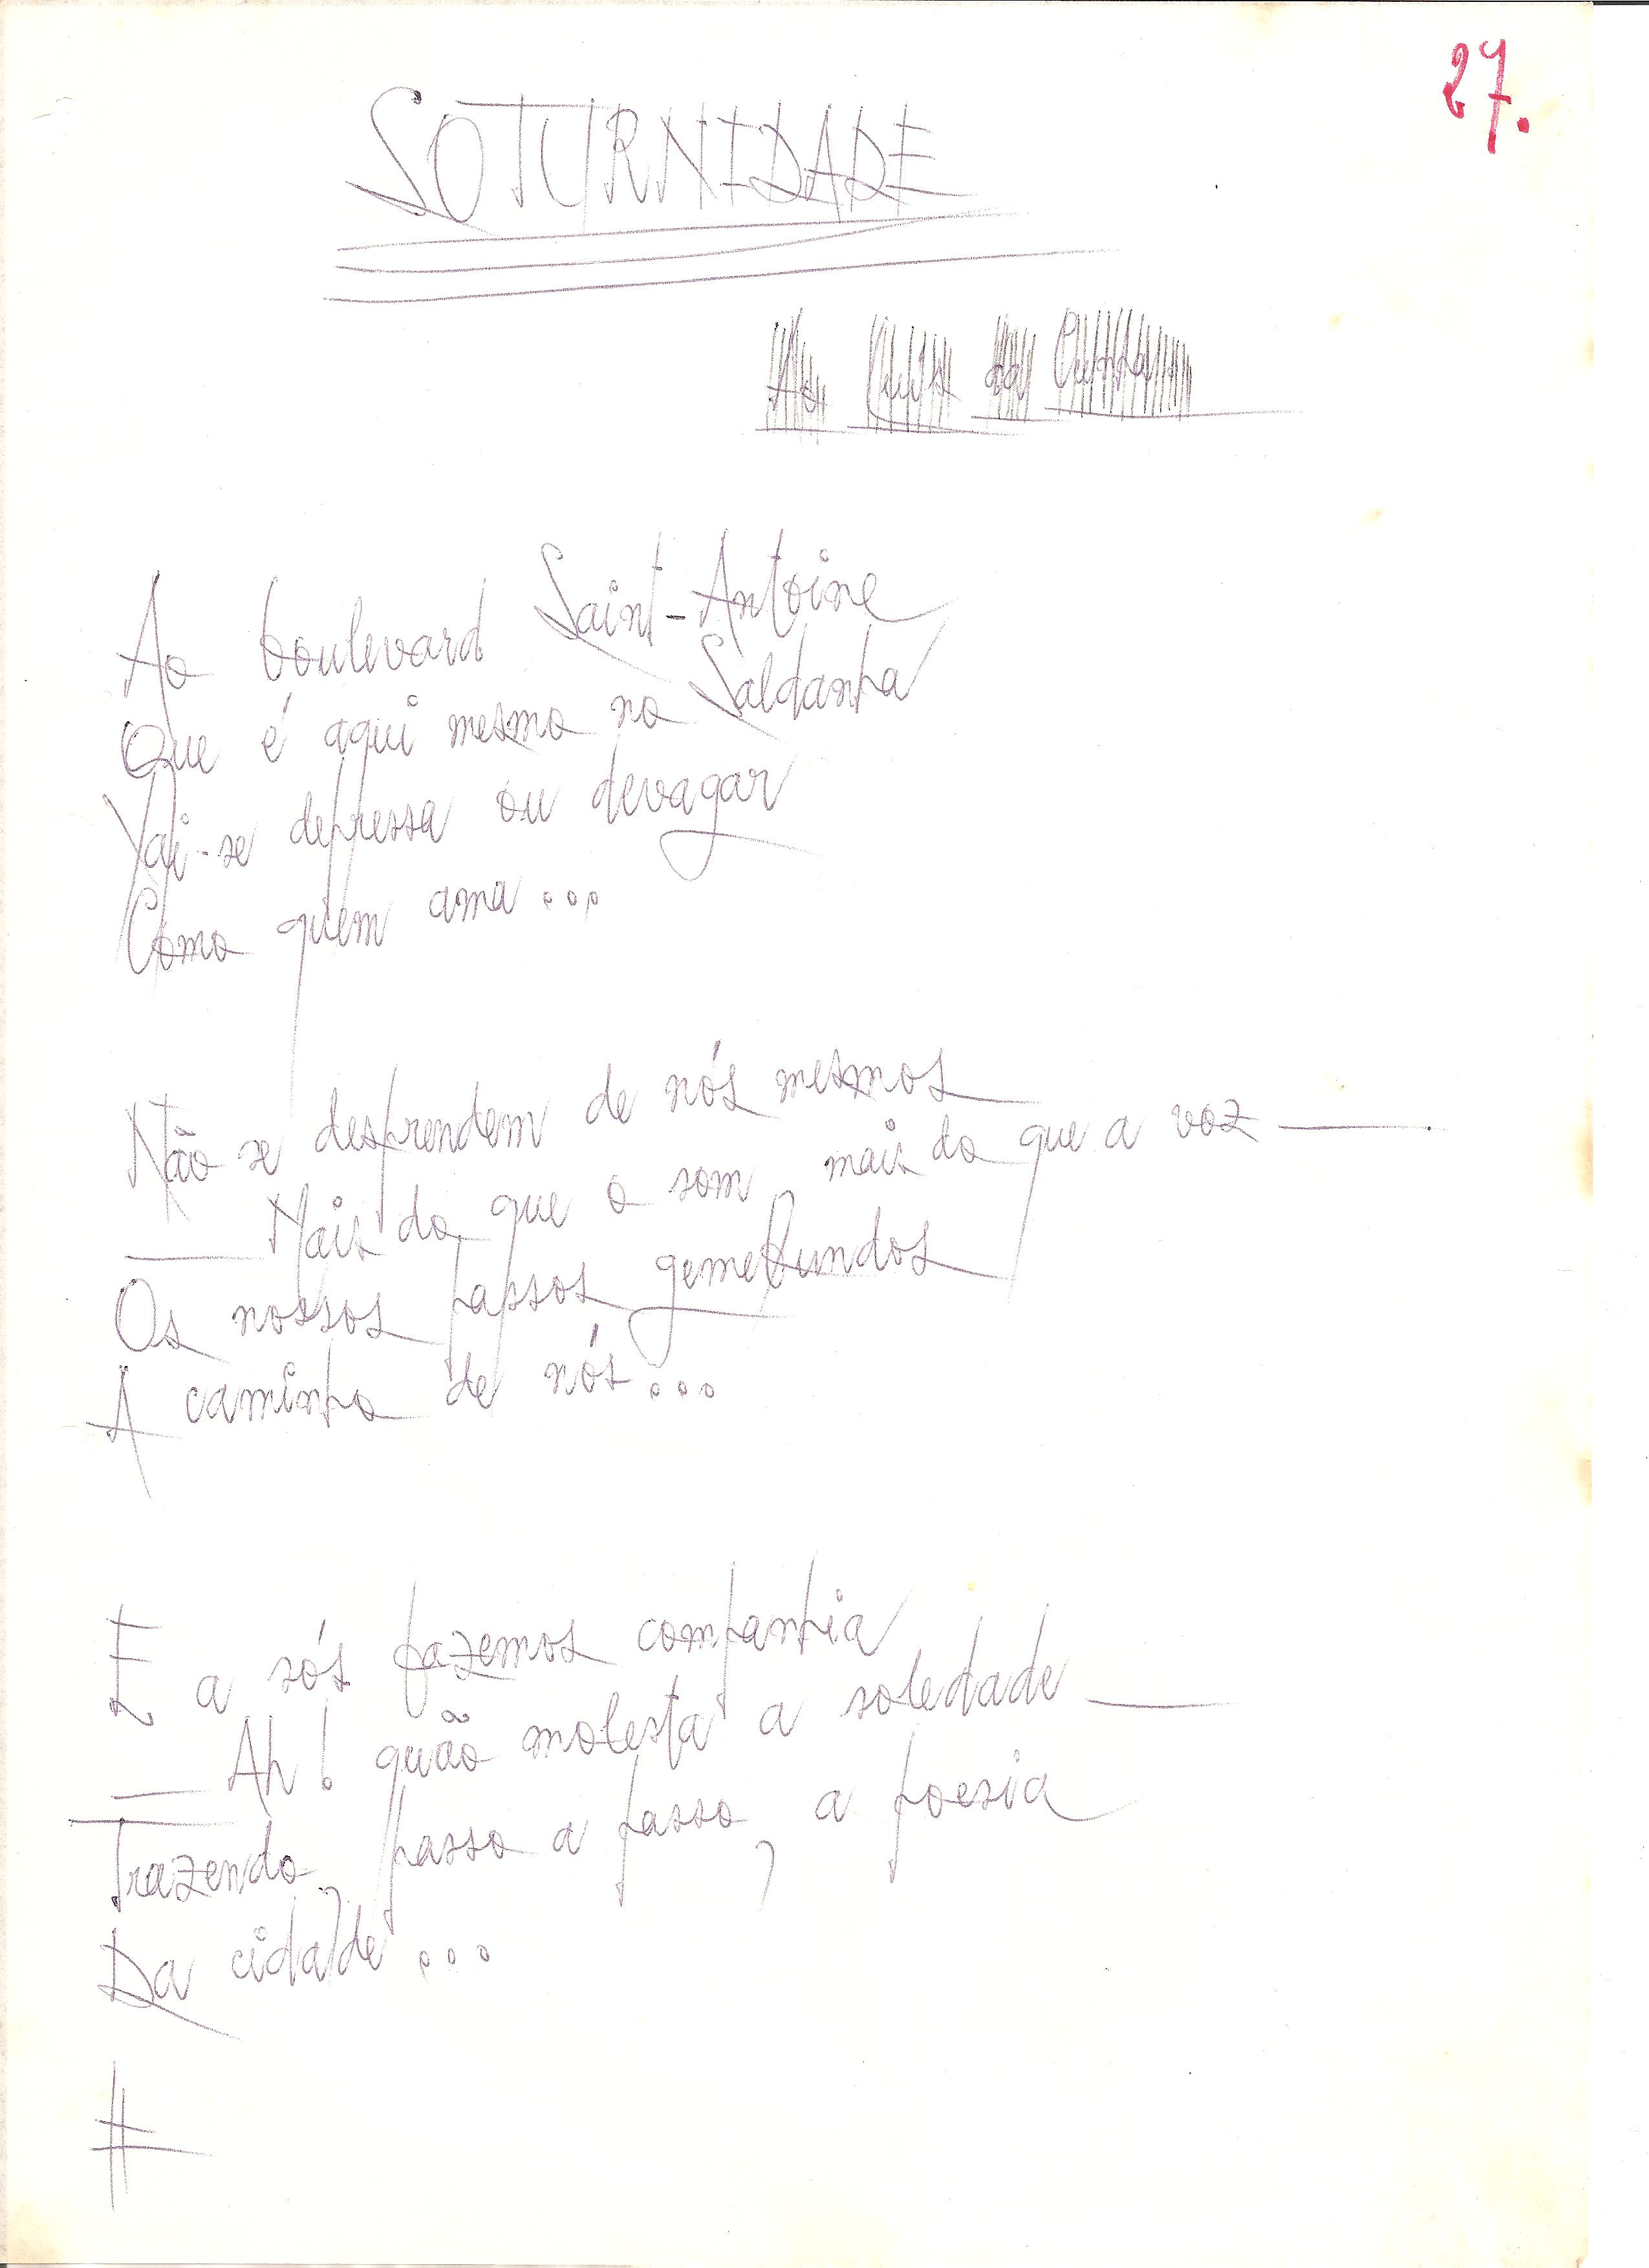 27.
SOTURNIDADE
Ao Luís da Cunha
Ao boulevard Saint-Antoine
Que é aqui mesmo no Saldanha
Vai-se depressa ou devagar
Como quem ama...
Não se desprendem de nós mesmos
— Mais do que o som, mais do que a voz —
Os nossos passos gemebundos
A caminho de nós...
E a sós fazemos companhia
— Ah! quão molesta a soledade —
Trazendo, passo a passo, a poesia
Da cidade...
#